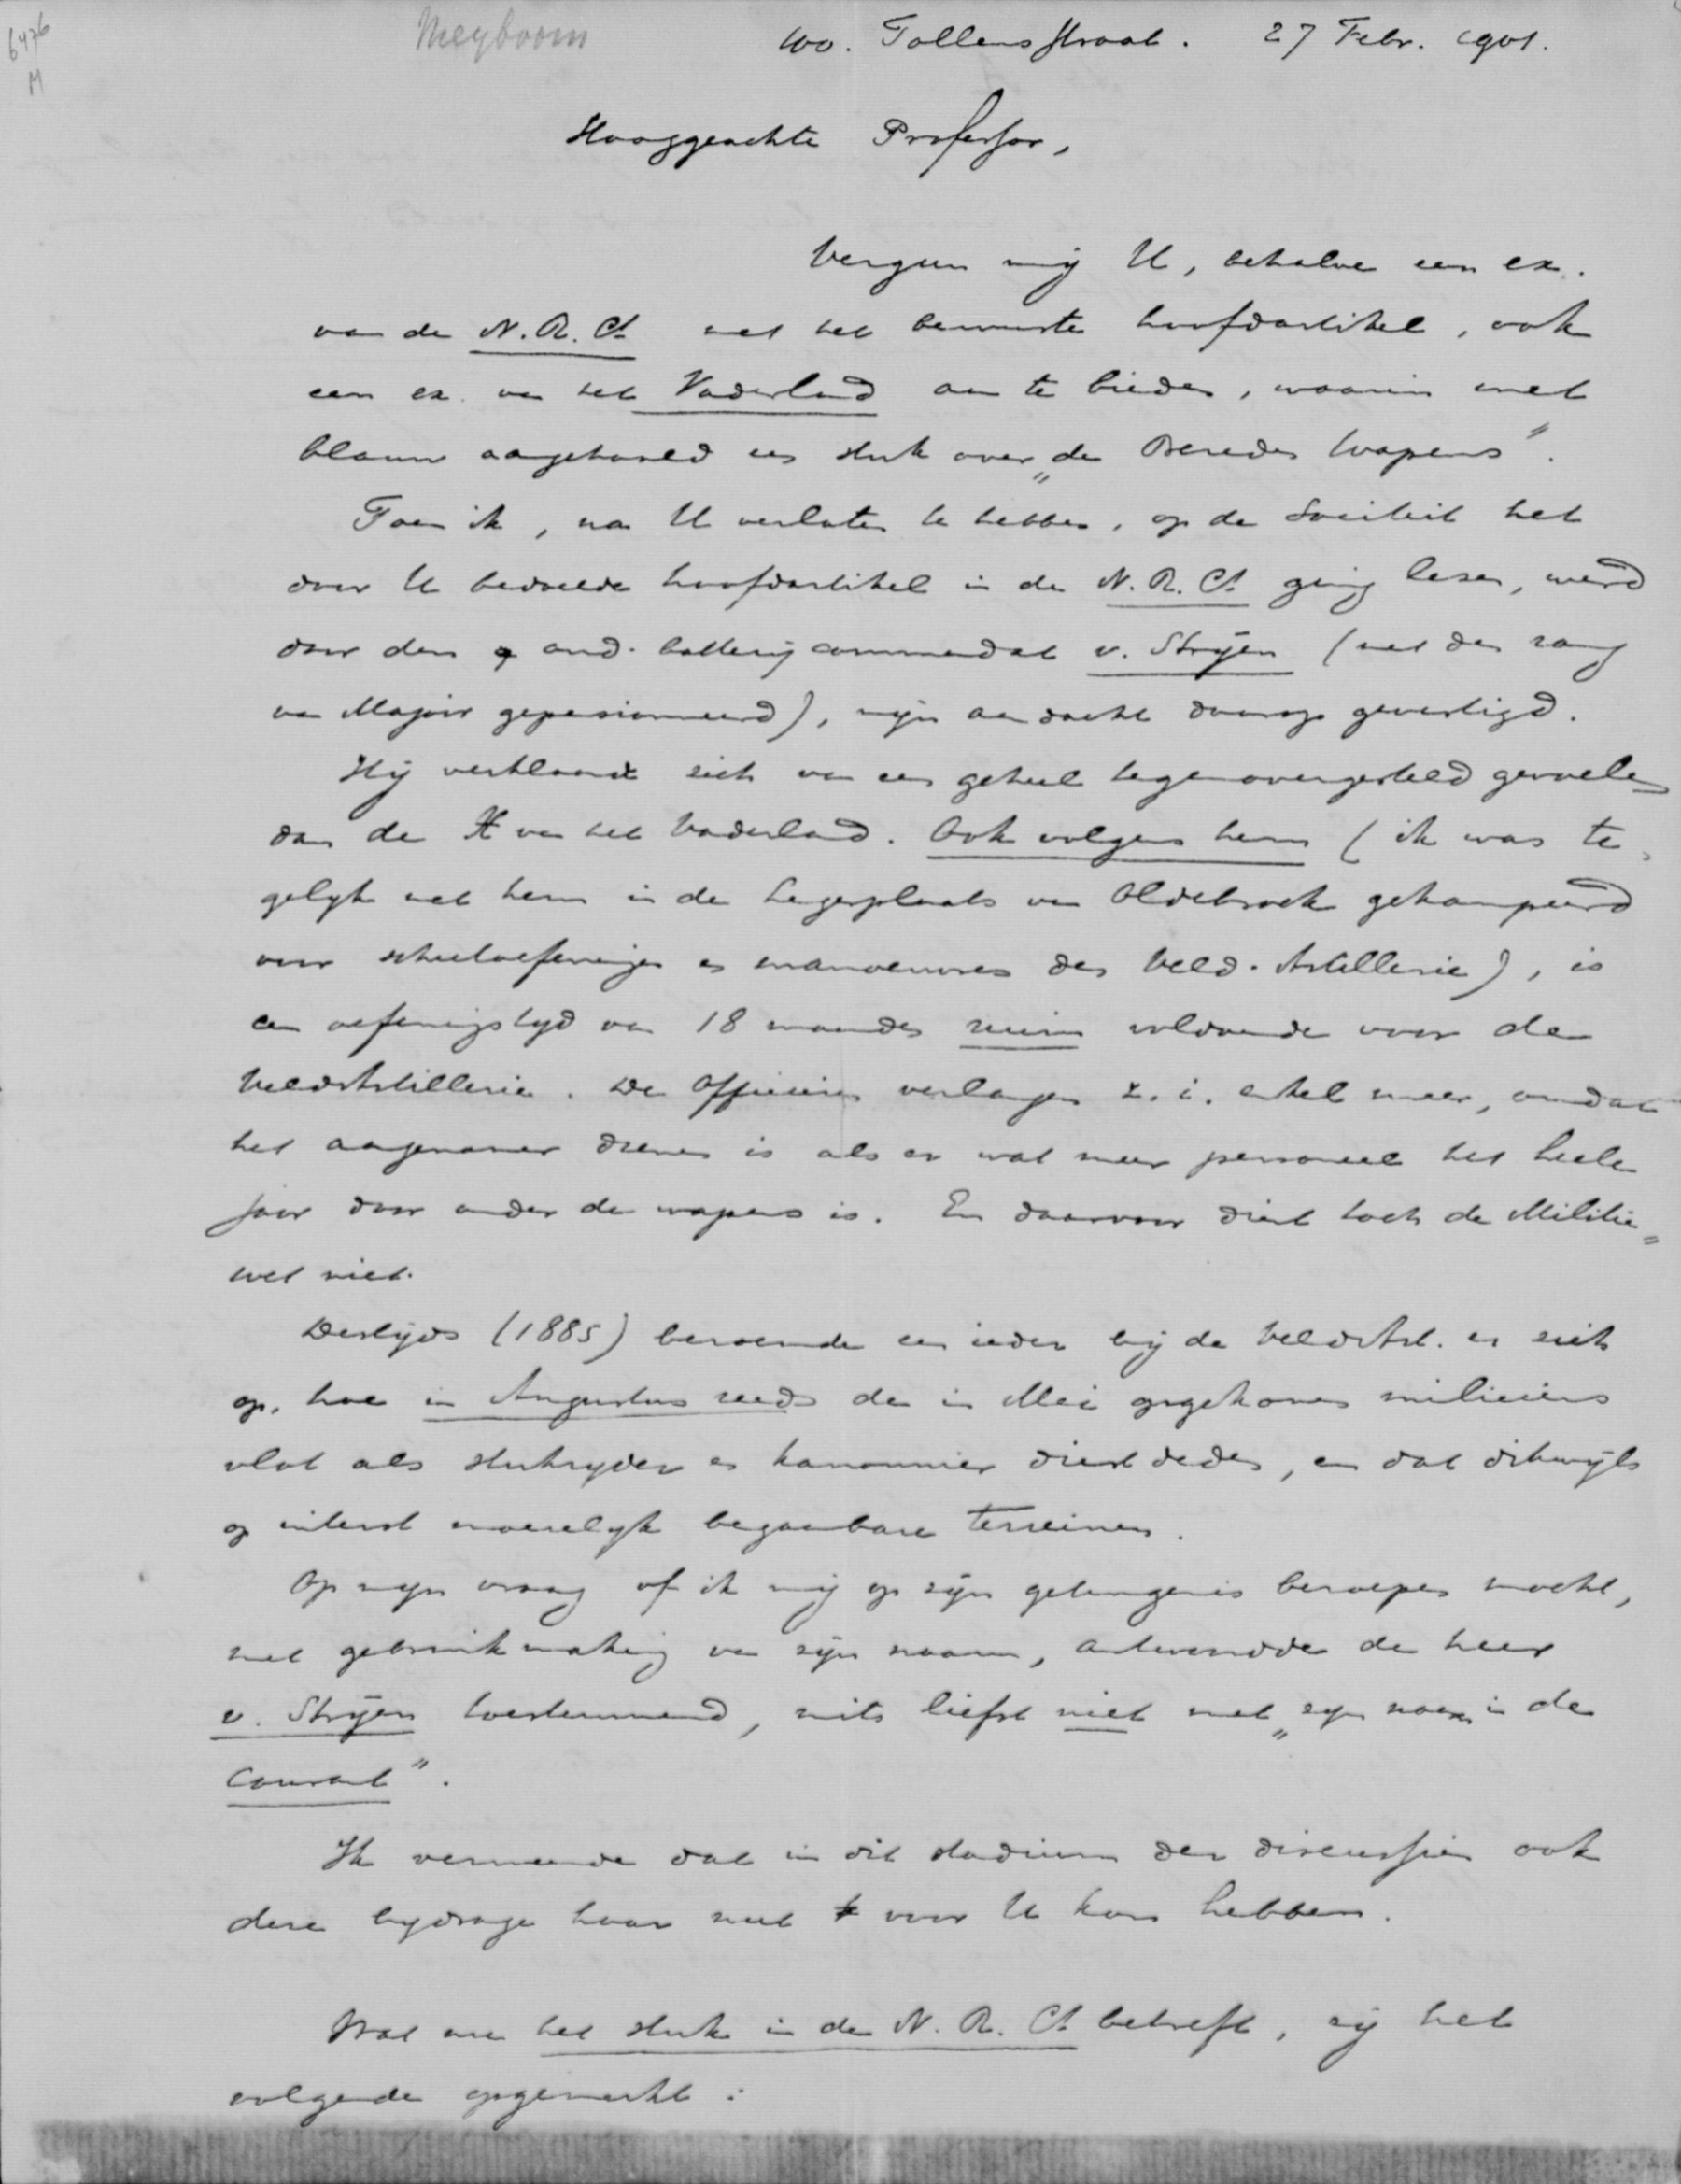 6476
M
Meyboom
100. Tollensstraat. 27 Febr. 1901.
Hooggeachte Professor,
Vergun mij U, behalve een ex.
van de N. R. Ct. met het bewuste hoofdartikel, ook
een ex. van het Vaderland aan te bieden, waarin met
blauw aangehaald een stuk over „de Bereden Wapens".
Toen ik, na U verlaten te hebben, op de Sociëteit het
door U bedoelde hoofdartikel in de N. R. Ct. ging lezen, werd
door den oud-batterijcommandant v. Stryen (met den rang
van Majoor gepensionneerd), mijn aandacht daarop gevestigd.
Hij verklaarde zich van een geheel tegenovergesteld gevoelen
dan de X van het Vaderland. Ook volgens hem (ik was te-
gelyk met hem in de Legerplaats van Oldebroek gekampeerd
voor schietoefeningen en manoeuvres der Veld-Artillerie), is
een oefeningstyd van 18 maanden ruim voldoende voor de
VeldArtillerie. De Officieren verlangen z. i. enkel meer, omdat
het aangenamer dienen is als er wat meer personeel het heele
jaar door onder de wapens is. En daarvoor dient toch de Militie=
wet niet.
Destijds (1885) beroemde een ieder bij de VeldArt. er zich
op, hoe in Augustus reeds de in Mei opgekomen miliciens
vlot als stukryder en kanonnier dienst deden, en dat dikwijls
op uiterst moeielyk begaanbare terreinen.
Op mijn vraag of ik mij op zijn getuigenis beroepen mocht,
met gebruikmaking van zijn naam, antwoordde de heer
v. Stryen toestemmend, mits liefst niet met „zyn naam in de
Courant".
Ik vermeende dat in dit stadium der discussiën ook
deze bydrage haar nut voor U kon hebben.
Wat nu het stuk in de N. R. Ct. betreft, zij het
volgende opgemerkt: